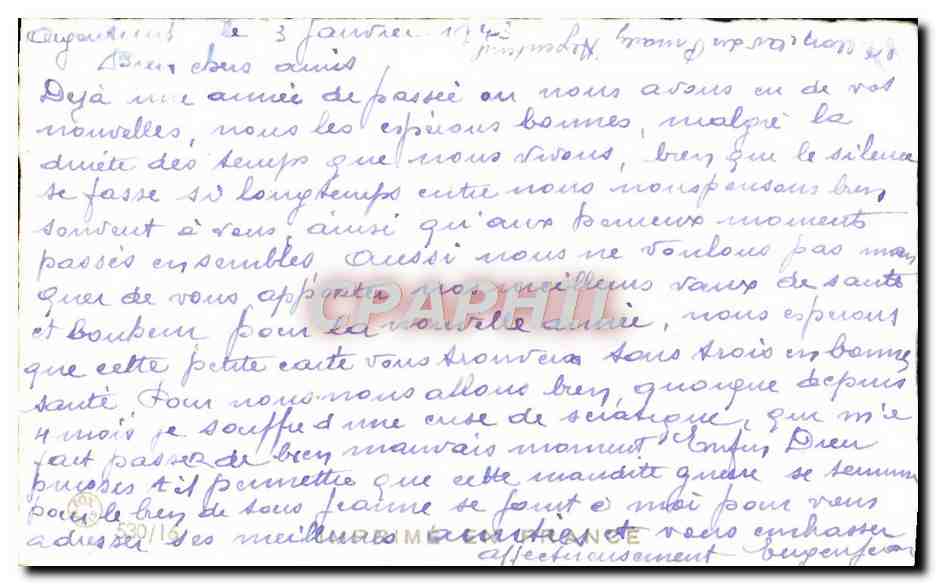 le 3 Janvier
Bien chers amis
Dejà une année de passée ou nous avons eu de vos
nouvelles, nous les espérons bonnes, malgré la
dureté des temps que nous vivons, bien que le silence
se fasse si longtemps entre nous nous pensons bien
souvent à vous, ainsi qu'aux moments
passés ensembles, Aussi nous ne voulons pas man
quer de vous apporter nos meilleurs vœux de santé
et bonheur pour la nouvelle année, nous esperons
que cette petite carte vous trouvera tous trois en bonne
santé. Pour nous nous allons bien, quoique depuis
4 mois je souffre d'une crise de sciatique, qui m'e
fait passer de bien mauvais moment Enfin Dieu
t'il permettre que cette maudite guerre se termine
pour le bien de tous Jeanne se joint à moi pour vous
adresser ses meilleures amitiés et vous embrasser
affectueusement
CPAPHIL
530/16 IMPRIMÉ EN FRANCE